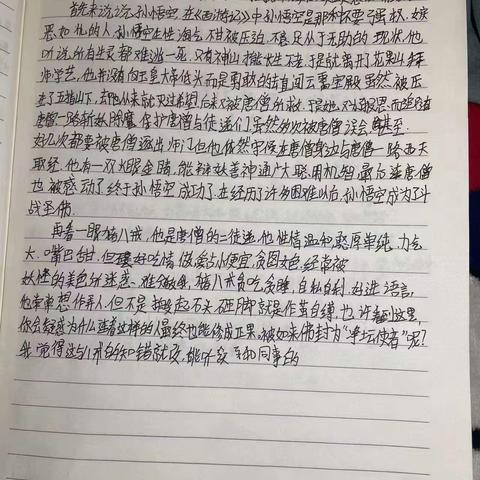 首先来说说孙悟空,在《西游记》中孙悟空是那种不畏强权,嫉
恶如仇的人,孙悟空生性淘气,不甘被压迫,不满足于无助的现状,他
听说所有生灵都难逃一死,只有神仙能长生不老,于是就离开了花果山拜
师学艺,他并没有向玉皇大帝低头而是勇敢的直闯云霄宝殿,虽然被压
在了五指山下,去他从来就灭过希望后来又被唐僧所救,于是她,对
唐僧一路斩妖除魔保护唐僧与徒弟们虽然多次被唐僧误会,甚至
好几次都要被唐僧逐出师门但他依然守候在唐僧身边与唐僧一路西天
取经,他有一双火眼金睛,能辩妖善神通广大,聪明机智,最后连唐僧
也被感动了终于孙悟空成功了,在经历了许多困难以后,孙悟空成为了斗
战圣佛.
再看一眼猪八戒,他是唐僧的二徒弟,他性情温和,憨厚单纯,力气
大,嘴巴甜,但好吃懒做爱占小便宜,贪图女色,经常被
妖怪的美色所迷惑,难分敌我,猪八戒贪吃,贪睡,自私自利,好进谗言,
他常常想作弄人,但不是搬起石头砸脚就是作茧自缚,也许看到这里,
你会疑惑为什么连着这样的人最终也能修成正果,被如来佛封为“净坛使者”呢?
我觉得这与八戒的知错就改,能听